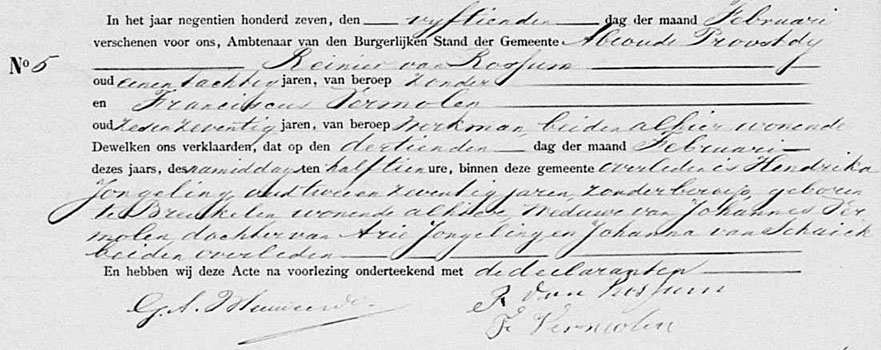 In het jaar negentien honderd zeven, den vyftienden dag der maand Februari
verschenen voor ons, Ambtenaar van den Burgerlijken Stand der Gemeente Abcoude Proostdy
No 5 Reinier van Rossum
oud eenentachtig jaren, van beroep zonder
en Franciscus Vermolen
oud zesenzeventig jaren, van beroep Werkman, beiden alhier wonende
Dewelken ons verklaarden, dat op den dertienden dag der maand Februari
dezes jaars, des namiddags ten half tien ure, binnen deze gemeente overleden is Hendrika
Jongeling, oud twee en zeventig jaren, zonder beroep, geboren
te Breukelen wonende alhier, Weduwe van Johannes Ver
molen, dochter van Arie Jongeling en Johanna van Schaick
beiden overleden
En hebben wij deze Acte na voorlezing onderteekend met de declaranten
G. A.
R van Rossum
Fr Vermolen